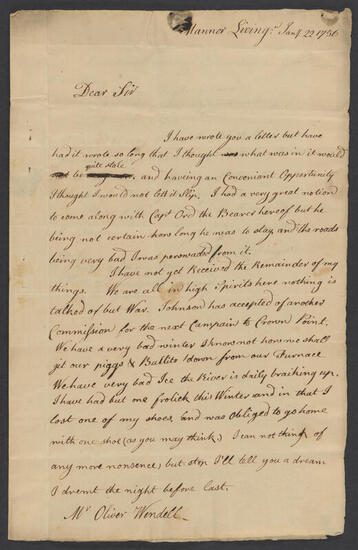 Mannor Living.n Jan.y 22 1756
Dear Sir
I have wrote you a letter but have
had it wrote so long that I thought what was in it would
quite stale
be and haveing an Conveniant Opportunity
I thought I would not let it Slip. I had a very great notion
to come along with Capt Ord the Bearer hereof but he
being not certain how long he was to stay and the roads
being very bad I was perswaded from it.
I have not yet Received the Remainder of my
things. We are all in high Spirits here nothing is
talked of but War. Johnson has accepted of another
Commission for the next Campain to Crown Point.
We have a very bad winter I know not how we shall
get our piggs & Ballits down from our Furnace
We have very bad Ice the River is daily braiking up.
I have had but one frolick this Winter and in that I
lost one of my shoes, and was Obliged to go home
with one shoe (as you may think) I can not think of
any more nonsence, but stop I'll tell you a dream
I dremt the night before last.
Mr Oliver Wendell